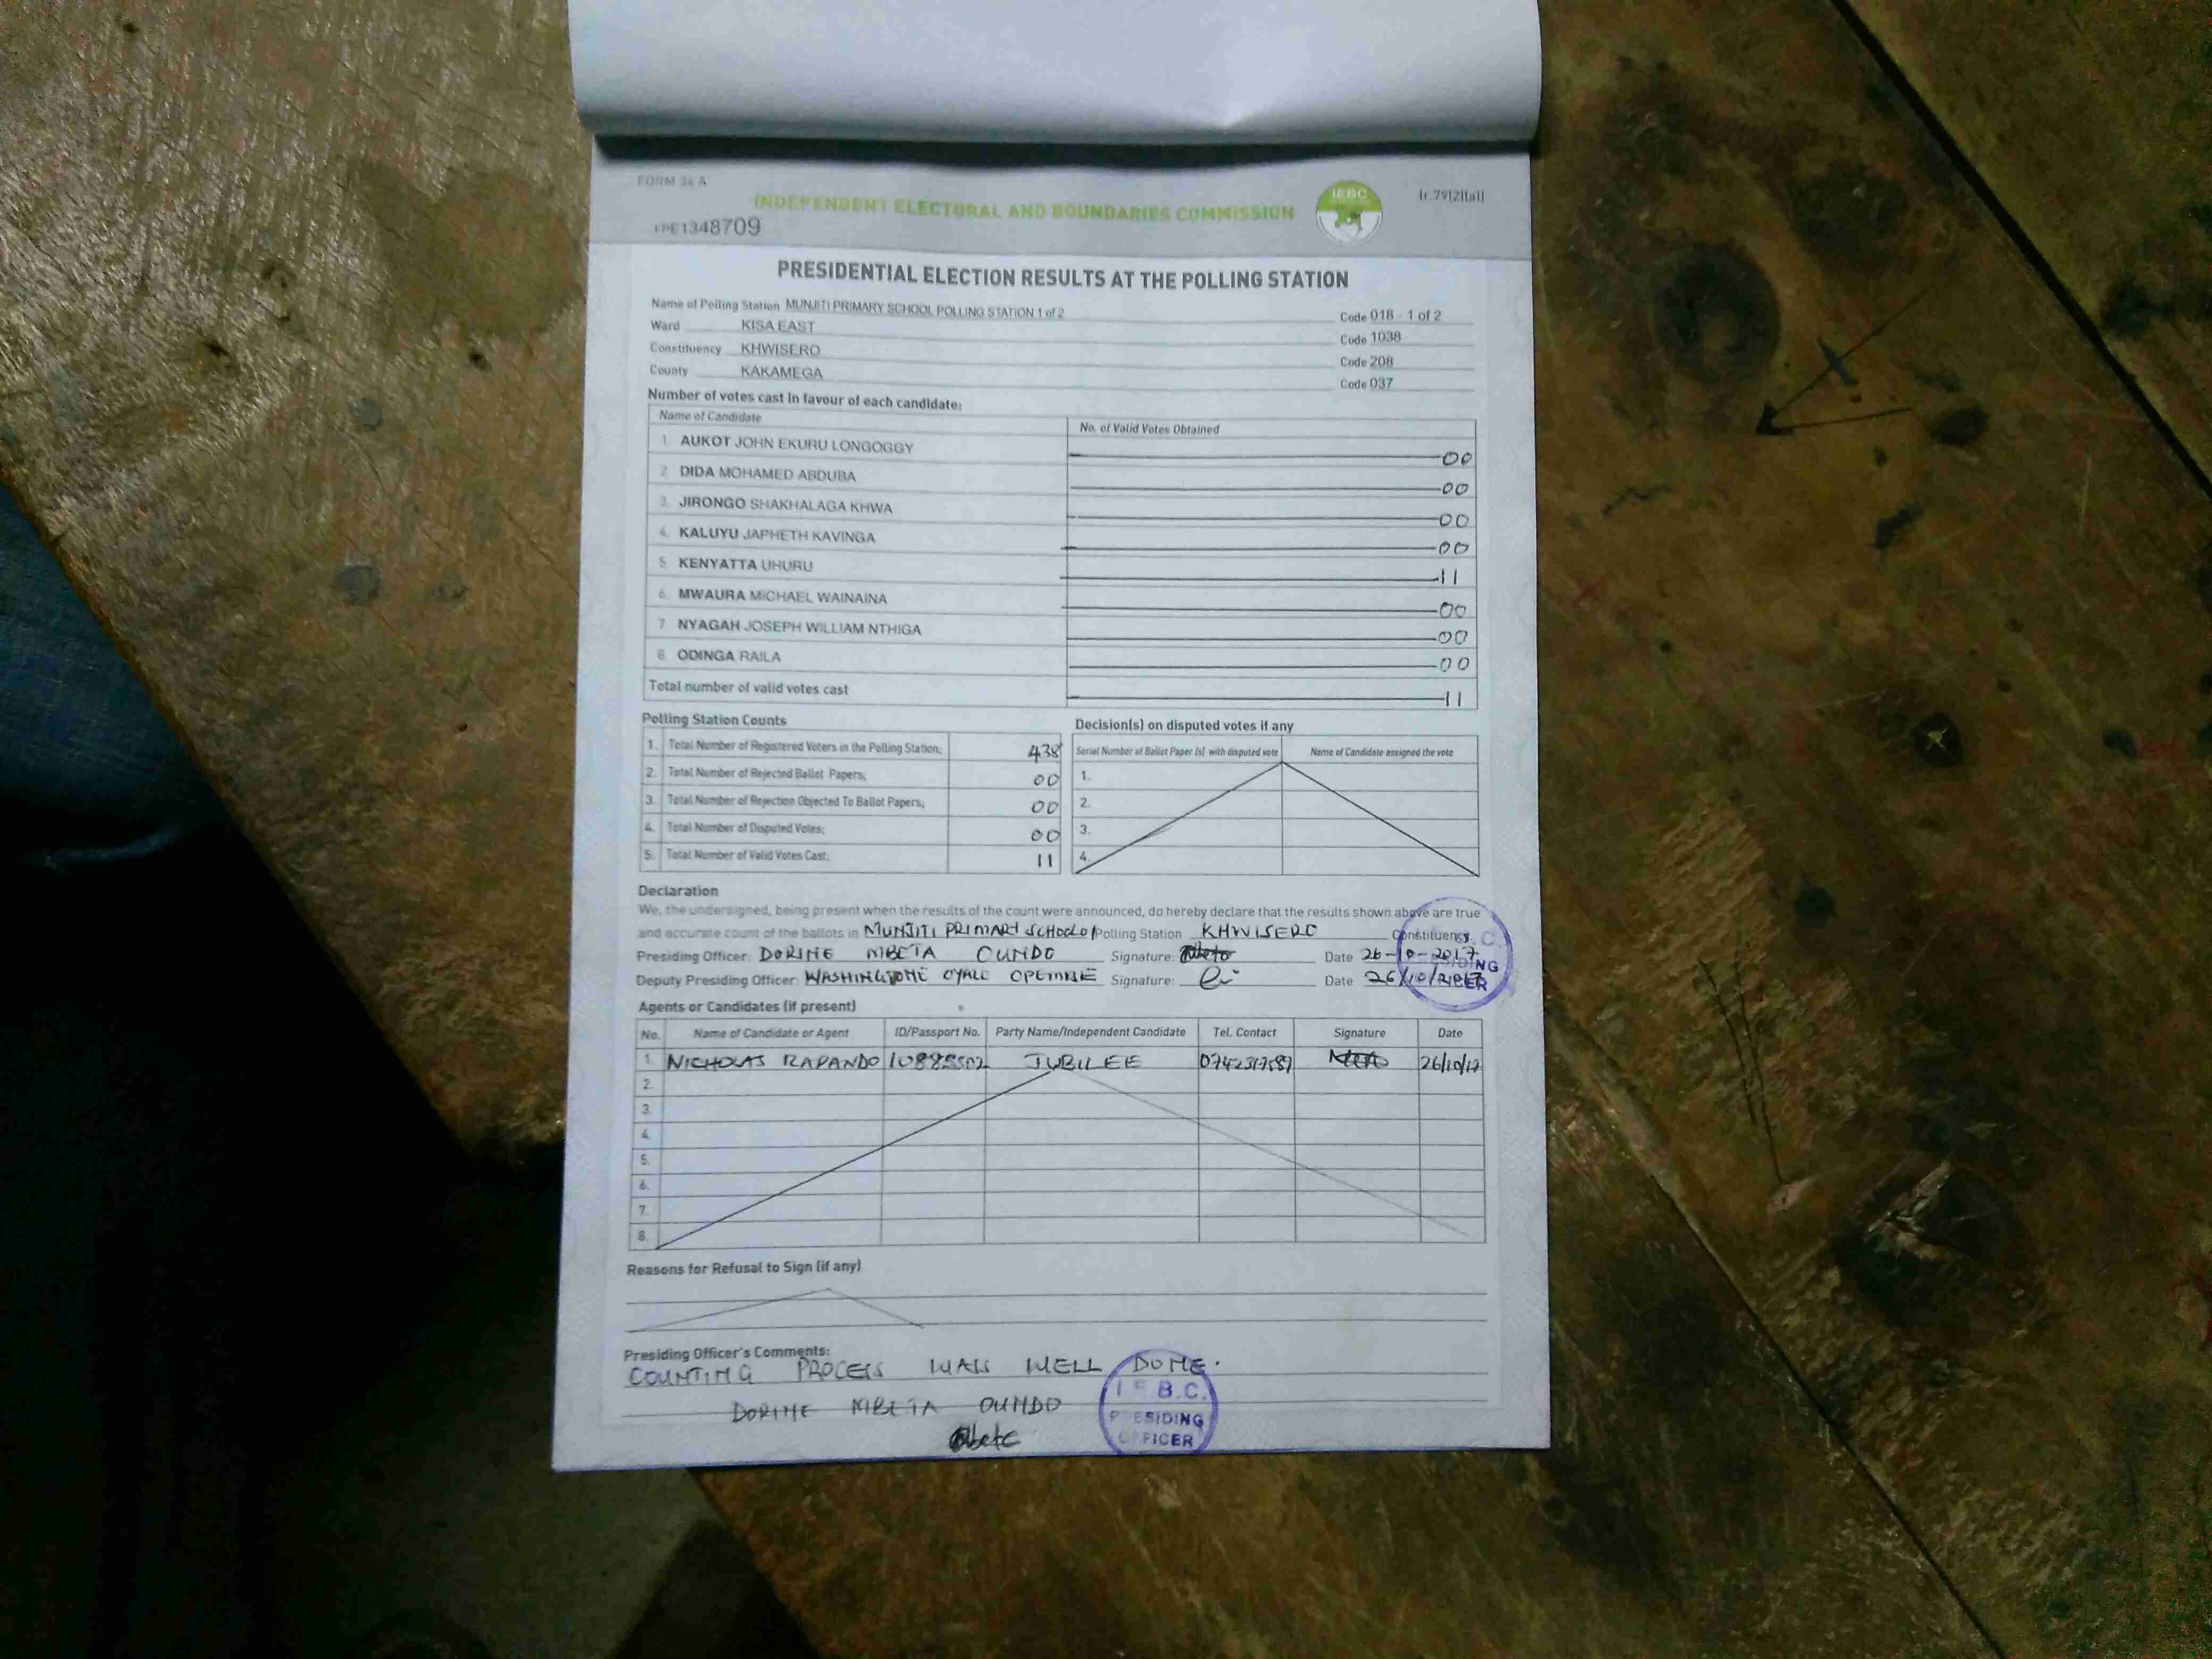 FORM 34 A
INDEPENDENT ELECTORAL AND BOUNDARIES COMMISSION
IEBC
(r. 79(2)(a))
FPE1348709
PRESIDENTIAL ELECTION RESULTS AT THE POLLING STATION
Name of Polling Station MUNJITI PRIMARY SCHOOL POLLING STATION 1 of 2 Code 018 - 1 of 2
Ward KISA EAST Code 1038
Constituency KHWISERO Code 208
County KAKAMEGA Code 037
Number of votes cast in favour of each candidate;
Name of Candidate No. of Valid Votes Obtained
1. AUKOT JOHN EKURU LONGOGGY 00
2. DIDA MOHAMED ABDUBA 00
3. JIRONGO SHAKHALAGA KHWA 00
4. KALUYU JAPHETH KAVINGA 00
5. KENYATTA UHURU 11
6. MWAURA MICHAEL WAINAINA 00
7. NYAGAH JOSEPH WILLIAM NTHIGA 00
8. ODINGA RAILA 00
Total number of valid votes cast 11
Polling Station Counts
1. Total Number of Registered Voters in the Polling Station; 438
2. Total Number of Rejected Ballot Papers; 00
3. Total Number of Rejection Objected To Ballot Papers; 00
4. Total Number of Disputed Votes; 00
5. Total Number of Valid Votes Cast; 11
Decision(s) on disputed votes if any
Serial Number of Ballot Paper (s) with disputed vote Name of Candidate assigned the vote
1.
2.
3.
4.
Declaration
We, the undersigned, being present when the results of the count were announced, do hereby declare that the results shown above are true
and accurate count of the ballots in MUNJITI PRIMARY SCHOOL Polling Station KHWISERO Constituency.
Presiding Officer: DORINE MBETA OUNDO Signature: Date 26-10-2017
Deputy Presiding Officer: OYALE Signature: Date 26/10/2017
Agents or Candidates (if present)
No. Name of Candidate or Agent ID/Passport No. Party Name/Independent Candidate Tel. Contact Signature Date
1. NICHOLAS RAPANDO JUBILEE 26/10/17
2.
3.
4.
5.
6.
7.
8.
Reasons for Refusal to Sign (if any)
Presiding Officer's Comments:
COUNTING PROCESS WAS WELL DONE.
DORINE MBETA OUNDO
I E B.C.
PRESIDING
OFFICER